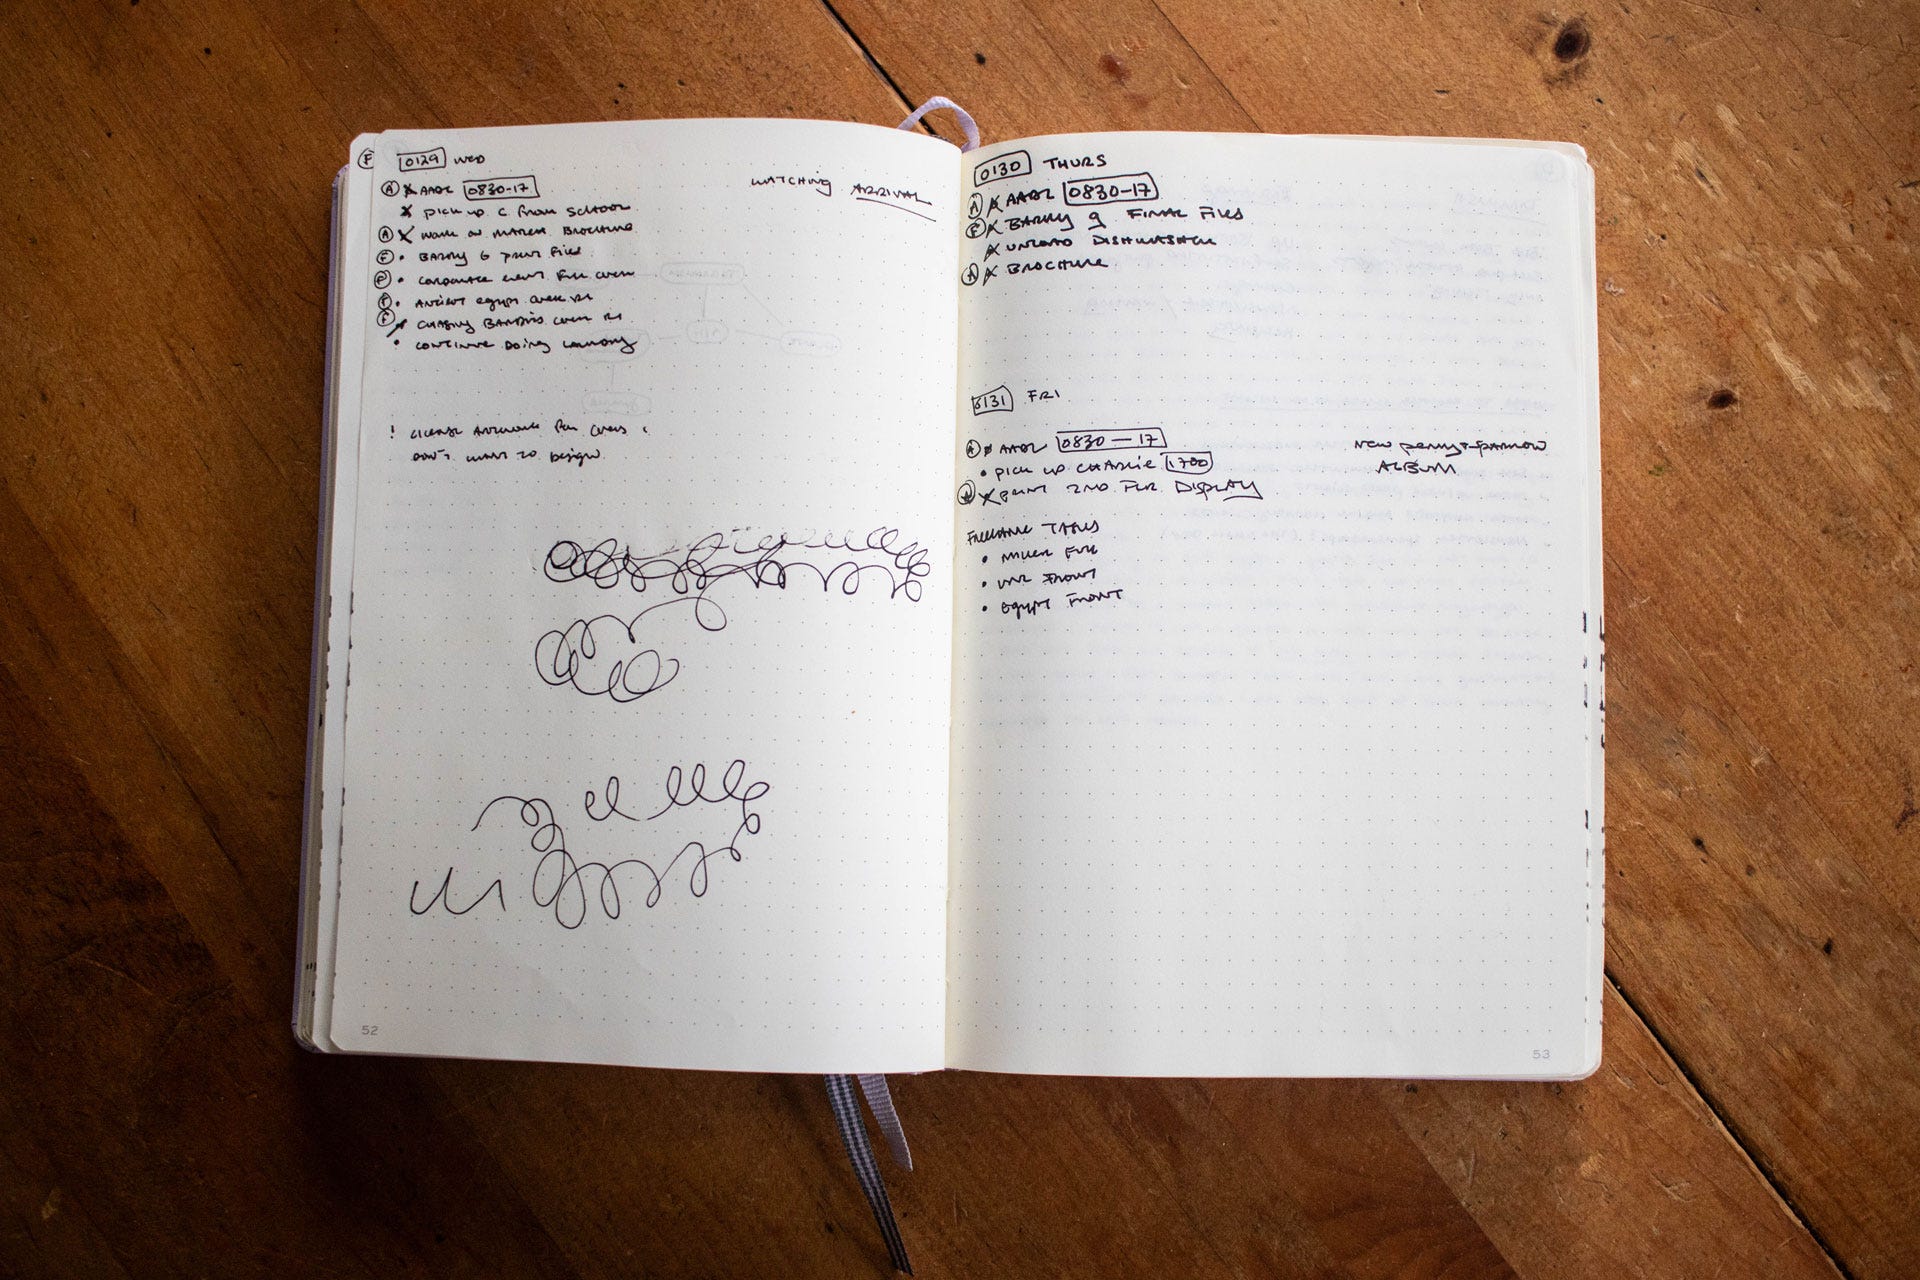 F 0129 WED
A x AADL 0830-17
x PICK UP C FROM SCHOOL
A x WORK ON MARCH BROCHURE
F • BARRY G PRINT FILES
F • CORPORATE EVENT FULL COVER
F • ANCIENT EGYPT COVER R1
F CHASING COVER R1
• CONTINUE DOING LAUNDRY
! LICENSE ARTWORK FOR COVERS I
DON'T WANT TO DESIGN
WATCHING ARRIVAL
52
0130 THURS
A x AADL 0830-17
F x BARRY G FINAL FILES
x UNLOAD DISHWASHER
A x BROCHURE
0131 FRI
A AADL 0830 — 17
• PICK UP CHARLIE 1700
x PRINT 2ND FLR DISPLAY
NEW PENNY + SPARROW
ALBUM
FREELANCE TASKS
• FULL
• FRONT
• EGYPT FRONT
53